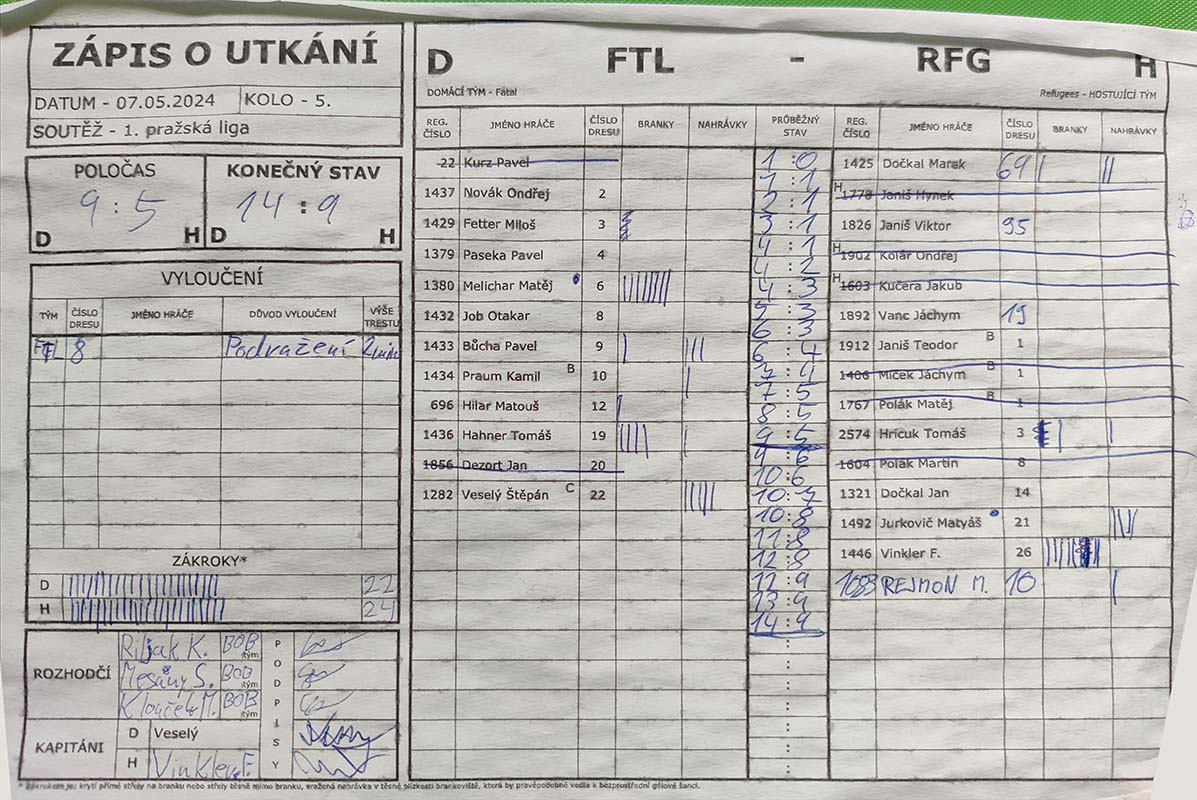 ZÁPIS O UTKÁNÍ
DATUM - 07.05.2024 KOLO - 5.
SOUTĚŽ - 1. pražská liga
POLOČAS KONEČNÝ STAV
9 : 5 14 : 9
D H D H
VYLOUČENÍ
TÝM ČÍSLO DRESU JMÉNO HRÁČE DŮVOD VYLOUČENÍ VÝŠE TRESTU
FTL 8 Podražení 2min
ZÁKROKY*
D 22
H 24
ROZHODČÍ
Riljak K. BOB tým
Mesány S. BOB tým
Klouček M. BOB tým
PODPISY
KAPITÁNI
D Veselý
H Vinkler F.
D FTL - RFG H
DOMÁCÍ TÝM - Fatal Refugees - HOSTUJÍCÍ TÝM
REG. ČÍSLO JMÉNO HRÁČE ČÍSLO DRESU BRANKY NAHRÁVKY PRŮBĚŽNÝ STAV REG. ČÍSLO JMÉNO HRÁČE ČÍSLO DRESU BRANKY NAHRÁVKY
-22 Kurz Pavel
1437 Novák Ondřej 2
1429 Fetter Miloš 3
1379 Paseka Pavel 4
1380 Melichar Matěj 6
1432 Job Otakar 8
1433 Bůcha Pavel 9
1434 Praum Kamil B 10
696 Hilar Matouš 12
1436 Hahner Tomáš 19
1856 Dezort Jan 20
1282 Veselý Štěpán C 22
1:0
1:1
2:1
3:1
4:1
4:2
4:3
5:3
6:3
6:4
7:4
7:5
8:5
9:5
9:6
10:6
10:7
10:8
11:8
12:8
12:9
13:9
14:9
1425 Dočkal Marek 69
H 1778 Janiš Hynek
1826 Janiš Viktor 95
H 1902 Kolář Ondřej
H 1603 Kučera Jakub
1892 Vanc Jáchym 19
1912 Janiš Teodor B 1
1406 Míček Jáchym B 1
1767 Polák Matěj B 1
2574 Hricuk Tomáš 3
1604 Polák Martin 8
1321 Dočkal Jan 14
1492 Jurkovič Matyáš 21
1446 Vinkler F. 26
1083 REJMON M. 10
* Zákrokem je: krytí přímé střely na branku nebo střely těsně mimo branku, sražená nahrávka v těsné blízkosti brankoviště, která by pravěpodobně vedla k bezprostřední gólové šanci.